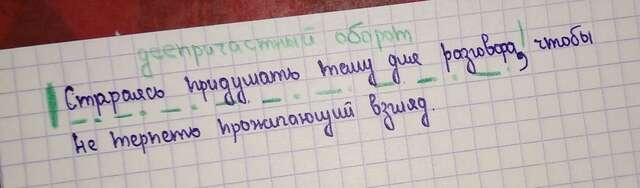 деепричастный оборот
Стараясь придумать тему для разговора, чтобы
не терпеть прожигающий взгляд.